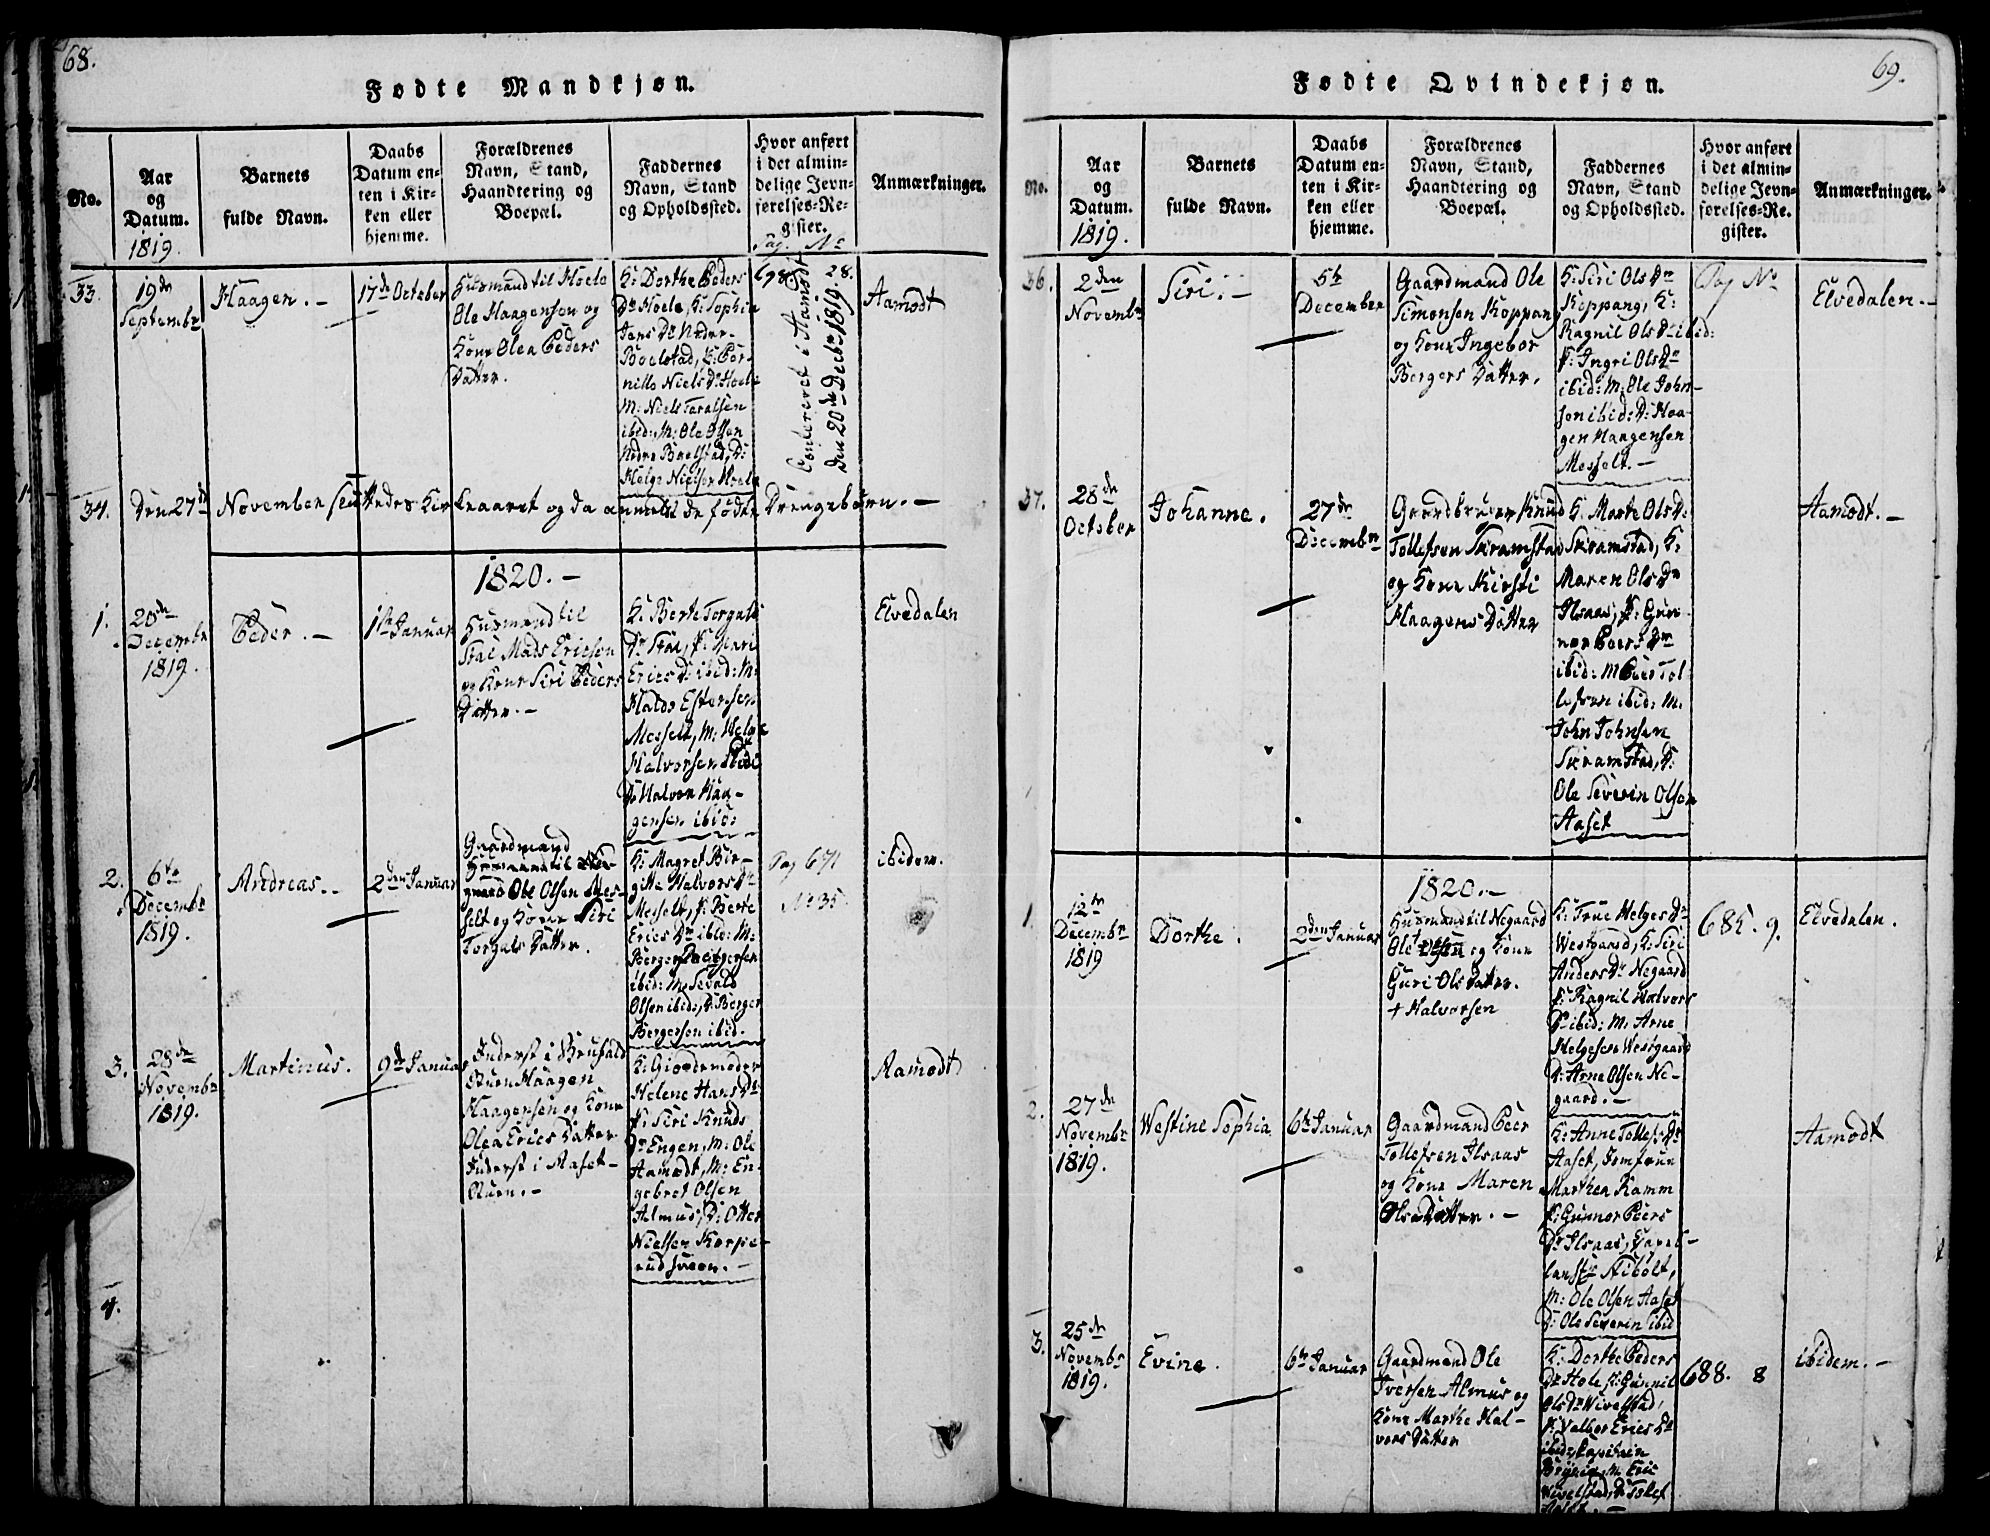 68.
Fødte Mandkjøn.
No.
Aar
og
Datum.
1819.
Barnets
fulde Navn.
Daabs
Datum en-
ten i Kir-
ken eller
hjemme.
Forældrenes
Navn, Stand,
Haandtering og
Boepæl.
Faddernes
Navn, Stand
og Opholdssted.
Hvor anført
i det almin-
delige Jevn-
førelses-Re-
gister.
Pag. No
Anmærkninger.
33.
19de
Septembr
Haagen.-
17de October
Huusmand til Hoele
Ole Haagensen og
Kone Olea Peders
Datter.
K: Dorthe Peders
Dr Hoele, K: Sophia
Jens Dr Nedre
Boelstad, P: Per-
nille Niels Dr Hoele
M: Niels Taralsen
ibid:, M: Ole Olsen
Nedre Boelstad, D:
Helge Nielsen Hoele
698. 28.
Confereret i Aamodt
den 20de Decbr 1819.
Aamodt
34.
Den 27de November sluttedes Kirkeaaret og da anmeldt de fødte Drengebørn.-
1820.-
1.
20de
Decembr
1819.
Peder.-
1ste Januar
Huusmand til
Stai Mads Ericsen
og Kone Siri Peders
Datter.-
K: Berte Torgals
Dr Stai, P: Mari
Erics D: ibid: M:
Haldo Estensen
Messelt, M: Helge
Halvorsen Stai
D: Halvor Haa-
gensen ibid:
Elvedalen
2.
6te
Decembr
1819.
Andreas.-
2den Januar
Gaardmand
Ole Olsen Mes-
selt og Kone Siri
Torgals Datter.
K: Magret Bir-
gitte Halvors Dr
Messelt, P: Berte
Erics Dr ibid: M:
Berger Bergersen
ibid: M: Sevald
Olsen ibid:, D: Berger
Bergersen ibid.
Pag 671
No 35.
ibidem.
3.
28de
Novembr
1819.
Martinus.
9de Januar
Inderst i
Haagen
Haagensen og Kone
Olea Erics Datter
Inderst i Aaset-
K: Giordemoder
Helene Hans Dr
P: Siri Knuds
Dr Engen, M: Ole
Aamodt, M: En-
gebret Olsen
Almus, D: Otter
Nielsen
Aamodt
4.
69.
Fødte Qvindekjøn.
No.
Aar
og
Datum.
1819.
Barnets
fulde Navn.
Daabs
Datum en-
ten i Kir-
ken eller
hjemme.
Forældrenes
Navn, Stand,
Haandtering og
Boepæl.
Faddernes
Navn, Stand
og Opholdssted.
Hvor anført
i det almin-
delige Jevn-
førelses-Re-
gister.
Anmærkninger.
36.
2den
Novembr
Siri.-
5te
December
Gaardmand Ole
Simensen Koppang
og Kone Ingebor
Bergers Datter.
K: Siri Ols Dr
Koppang, K:
Ragnil Ols Dr ibid:
P: Ingri Ols Dr
ibid: M: Ole John-
sen ibid: D: Haa-
gen Haagensen
Messelt.-
Pag No
Elvedalen.-
37.
28de
October
Johanne.
27de
Decembr
Gaardbruger Knud
Tollefsen Skramstad
og Kone Kirsti
Haagens Datter
K: Marte Ols D:
Skramstad, K:
Maren Ols Dr
Ilsaas, P: Gun-
nor Peers Dr
ibid: M: Peer Tol-
lefsen ibid: M:
John Johnsen
Skramstad, D:
Ole Severin Olsen
Aaset
Aamodt.-
1820.-
1
12te
Decembr
1819
Dorthe.
2den Januar
Huusmand til Negaard
Ole + Olsen og Kone
Guri Ols Datter.
+ Halvorsen
K: True Helges Dr
Westgaard, K: Siri
Anders Dr Negaard
P: Ragnil Halvors
Dr ibid: M: Arne
Helgesen Westgaard
D: Arne Olsen Ne-
gaard.-
685. 9.
Elvedalen.
2.
27de
Novembr
1819.
Westine Sophia
6te Januar
Gaardmand Peer
Tollefsen Ilsaas
og Kone Maren
Ols Datter.-
K: Anne Tollefs Dr
Aaset, Jomfrue
Marthea Ramm
P: Gunnor Peers
Dr Ilsaas, Capel-
lan Hr
M: Ole Olsen Aaset
D: Ole Severin ibid
Aamodt
3.
25de
Novembr
1819.
Evine.
6te Januar
Gaardmand Ole
Iversen Almus og
Kone Marthe Hal-
vors Datter
K: Dorthe Peders
Dr Hole, P: Gunnil
Ols Dr Wivelstad,
P: Valbor Erics Dr
ibid:, Capitain
M: Eric
Wivelstad, D: Tolef
688. 8
ibidem.-